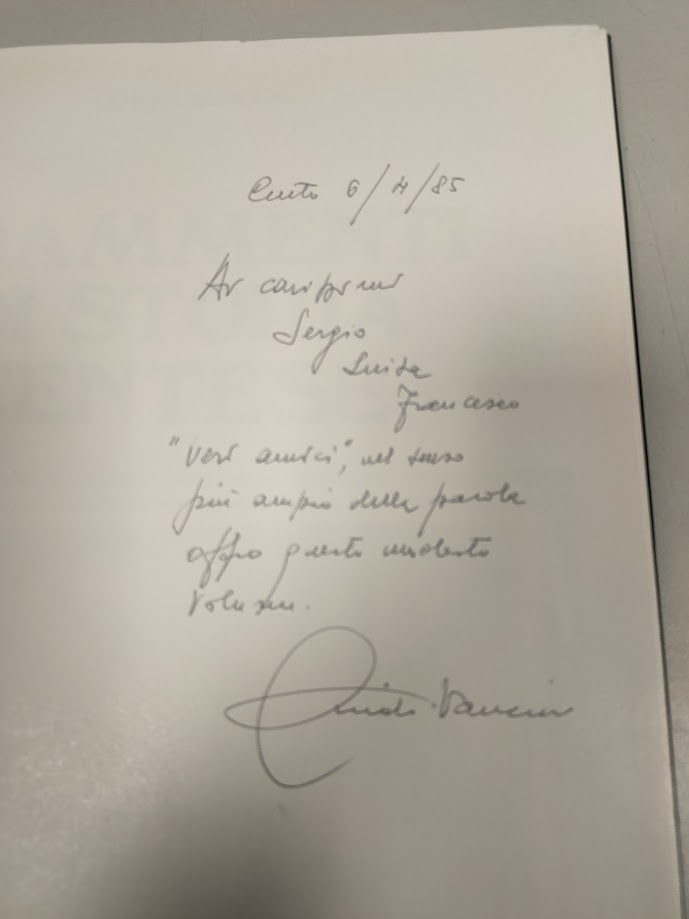 Cento 6/4/85
Ai cari primi
Sergio
Luisa
Francesco
"veri amici", nel senso
più ampio della parola
offro questo modesto
volume.
Guido Vancini